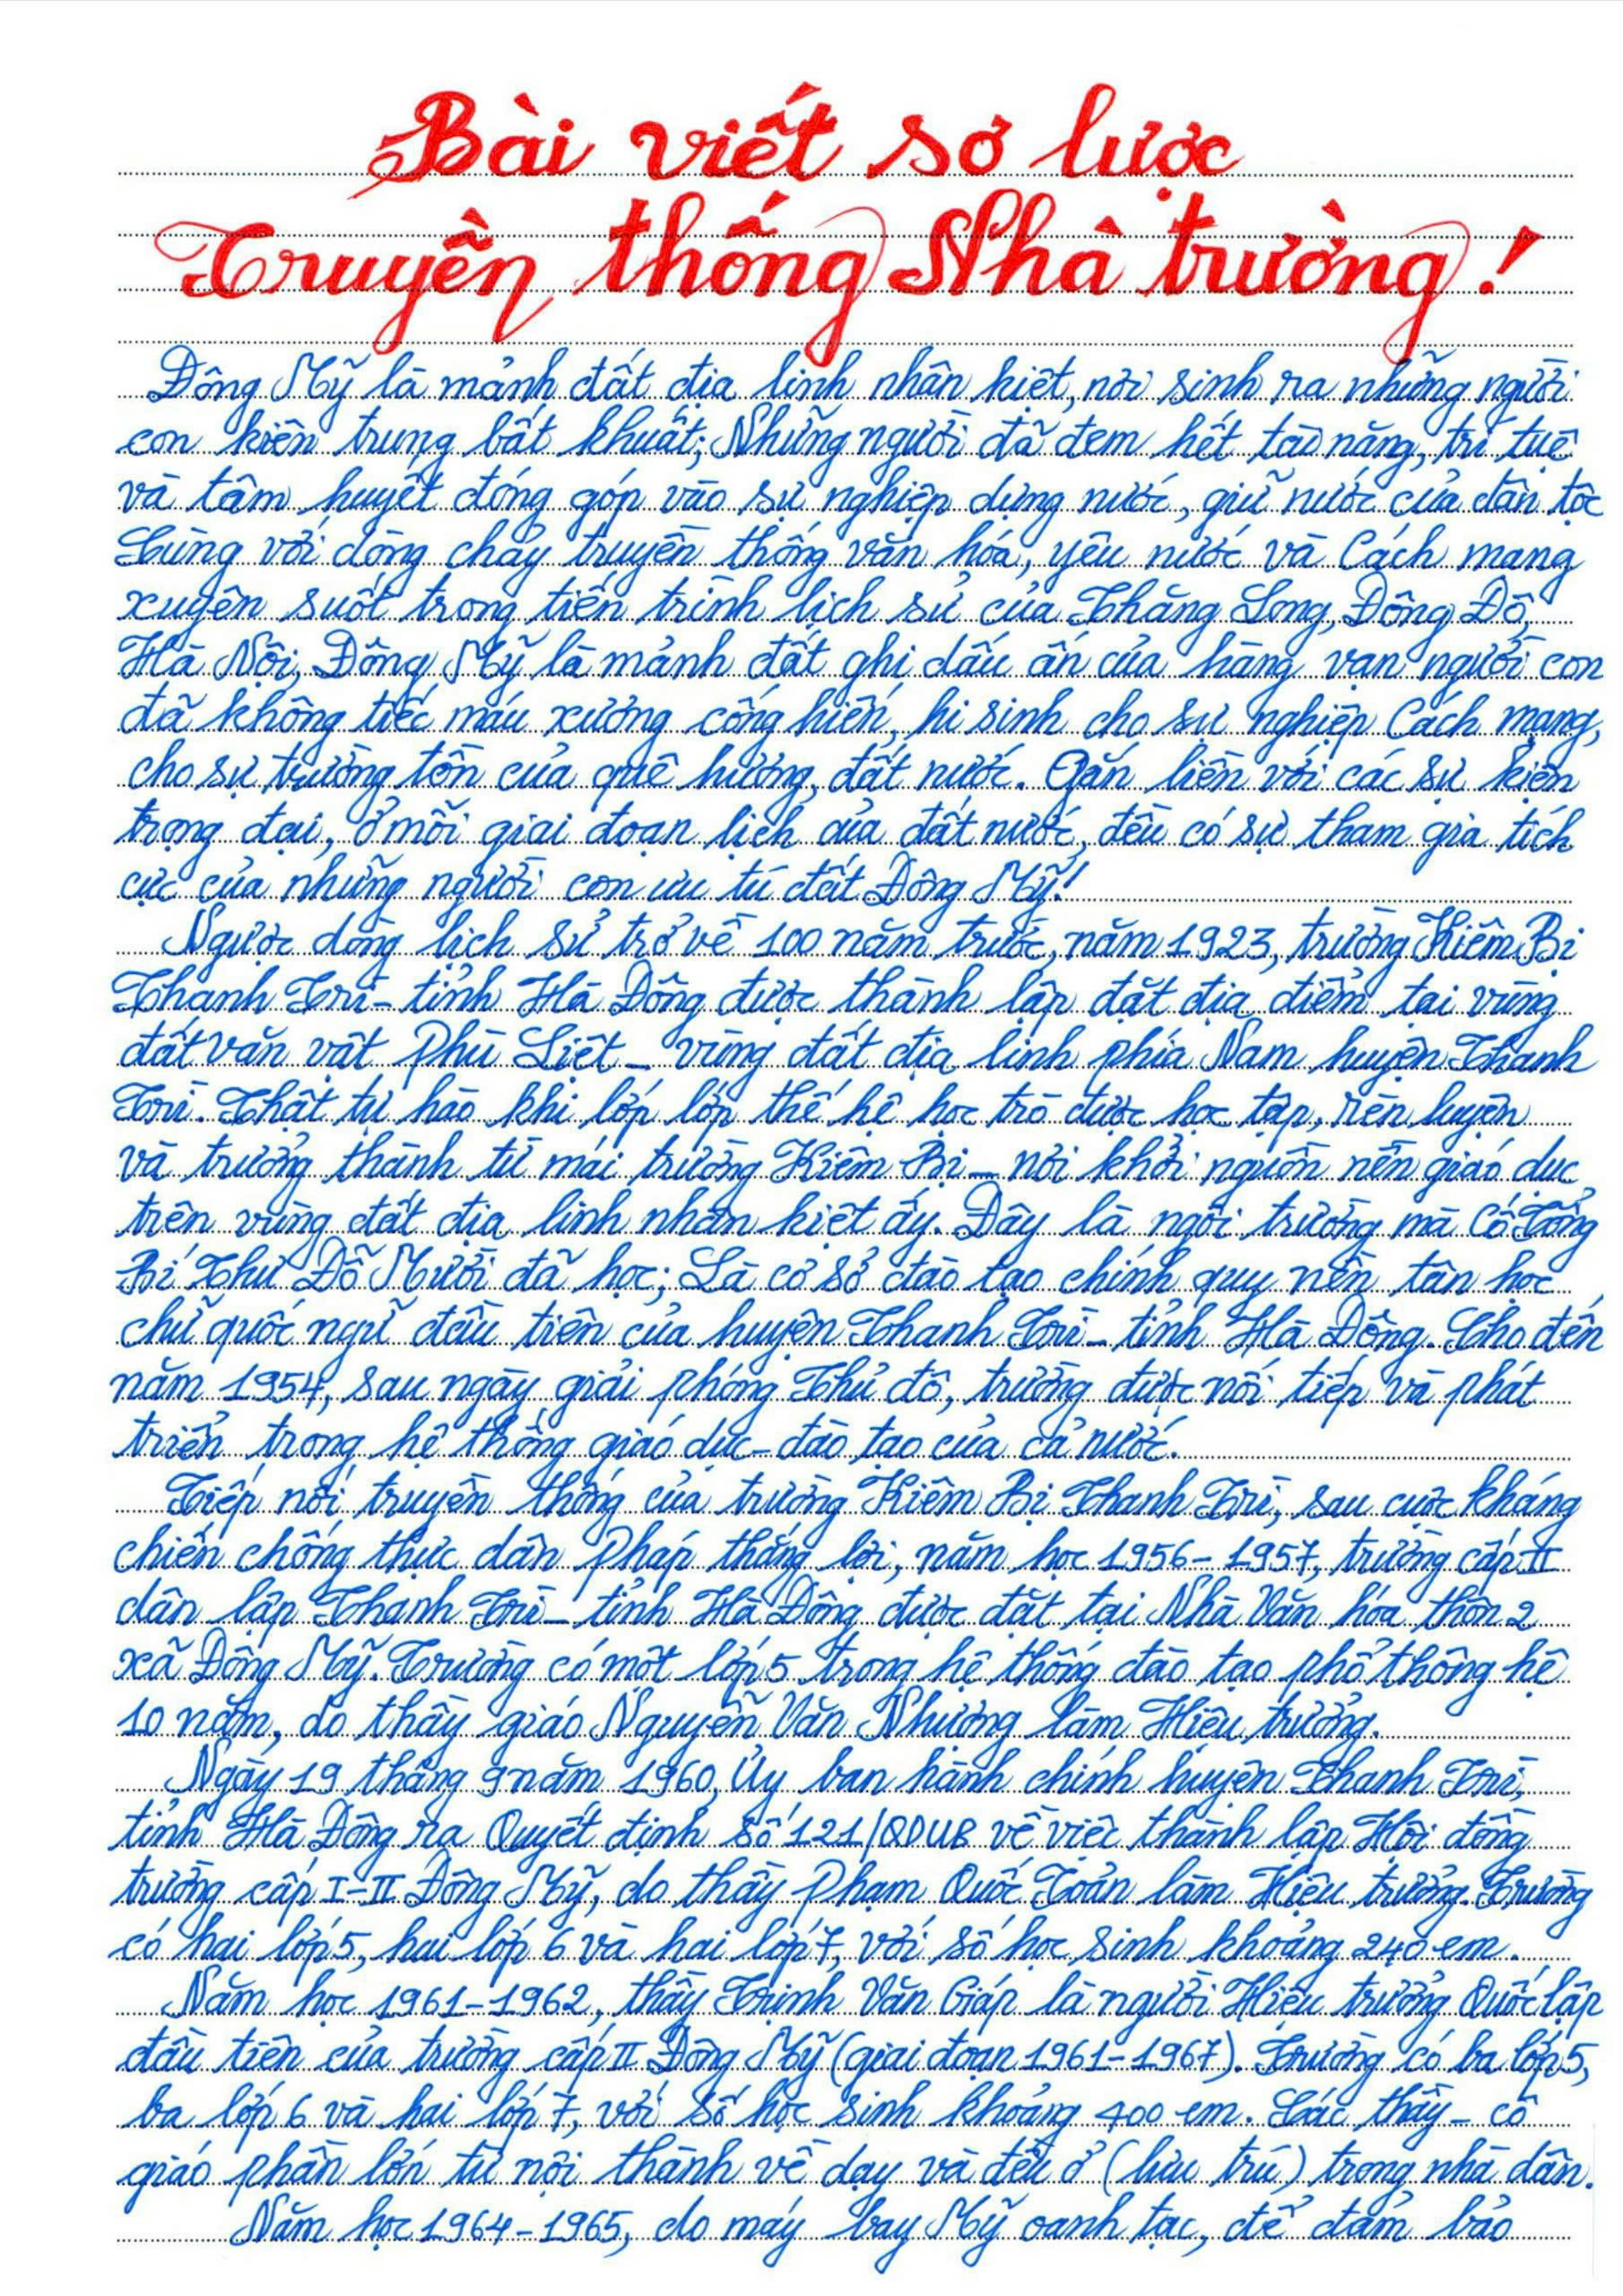 Bài viết sơ lược
Truyền thống Nhà trường!
Đông Mỹ là mảnh đất địa linh nhân kiệt, nơi sinh ra những người
con kiên trung bất khuất; Những người đã đem hết tài năng, trí tuệ
và tâm huyết đóng góp vào sự nghiệp dựng nước, giữ nước của dân tộc
Cùng với dòng chảy truyền thống văn hóa, yêu nước và Cách mạng
xuyên suốt trong tiến trình lịch sử của Thăng Long, Đông Đô,
Hà Nội, Đông Mỹ là mảnh đất ghi dấu ấn của hàng vạn người con
đã không tiếc máu xương cống hiến, hi sinh cho sự nghiệp Cách mạng,
cho sự trường tồn của quê hương, đất nước. Gắn liền với các sự kiện
trọng đại, ở mỗi giai đoạn lịch của đất nước, đều có sự tham gia tích
cực của những người con ưu tú đất Đông Mỹ!
Ngược dòng lịch sử trở về 100 năm trước, năm 1923, trường Kiêm Bị
Thanh Trì - tỉnh Hà Đông được thành lập đặt địa điểm tại vùng
đất văn vật Phù Liệt - vùng đất địa linh phía Nam huyện Thanh
Trì. Thật tự hào khi lớp lớp thế hệ học trò được học tập, rèn luyện
và trưởng thành từ mái trường Kiêm Bị - nơi khởi nguồn nền giáo dục
trên vùng đất địa linh nhân kiệt ấy. Đây là ngôi trường mà Cố Tổng
Bí Thư Đỗ Mười đã học; Là cơ sở đào tạo chính quy nền tân học
chữ quốc ngữ đầu tiên của huyện Thanh Trì - tỉnh Hà Đông. Cho đến
năm 1954, sau ngày giải phóng Thủ đô, trường được nối tiếp và phát
triển trong hệ thống giáo dục - đào tạo của cả nước.
Tiếp nối truyền thống của trường Kiêm Bị Thanh Trì, sau cuộc kháng
chiến chống thực dân Pháp thắng lợi, năm học 1956 - 1957, trường cấp II
dân lập Thanh Trì - tỉnh Hà Đông được đặt tại Nhà Văn hóa thôn 2
xã Đông Mỹ. Trường có một lớp 5 trong hệ thống đào tạo phổ thông hệ
10 năm, do thầy giáo Nguyễn Văn Nhương làm Hiệu trưởng.
Ngày 19 tháng 9 năm 1960, Ủy ban hành chính huyện Thanh Trì,
tỉnh Hà Đông ra Quyết định số 121/QDUB về việc thành lập Hội đồng
trường cấp I-II Đông Mỹ, do thầy Phạm Quốc Toản làm Hiệu trưởng. Trường
có hai lớp 5, hai lớp 6 và hai lớp 7, với số học sinh khoảng 240 em.
Năm học 1961-1962, thầy Trịnh Văn Giáp là người Hiệu trưởng Quốc lập
đầu tiên của trường cấp II Đông Mỹ (giai đoạn 1961-1967). Trường có ba lớp 5,
ba lớp 6 và hai lớp 7, với số học sinh khoảng 400 em. Các thầy - cô
giáo phần lớn từ nội thành về dạy và đều ở (lưu trú) trong nhà dân.
Năm học 1964-1965, do máy bay Mỹ oanh tạc, để đảm bảo